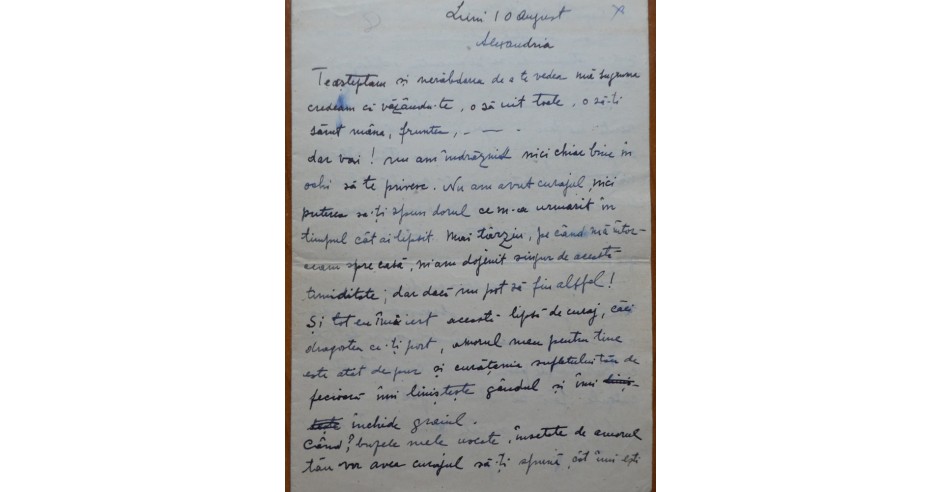 Luni 10 August
Alexandria
Te așteptam si nerăbdarea de a te vedea mă sugruma
credeam că văzându-te, o să uit toate, o să-ți
sărut mâna, fruntea, - — -
dar vai! nu am îndrăznit nici chiar bine în
ochi să te privesc. Nu am avut curajul, nici
puterea sa-ți spun dorul ce m-a urmărit în
timpul cât ai lipsit. Mai târziu, pe când mă întor-
ceam spre casă, m-am dojenit singur de această
timiditate; dar dacă nu pot să fiu altfel!
Și tot eu îmi iert această lipsă de curaj, căci
dragostea ce-ți port, amorul meu pentru tine
este atât de pur și curățenia sufletului tău de
fecioară îmi liniștește gândul și îmi liniș-
tește închide graiul.
Când? buzele mele uscate, însetate de amorul
tău vor avea curajul să-ți spună, cât îmi ești